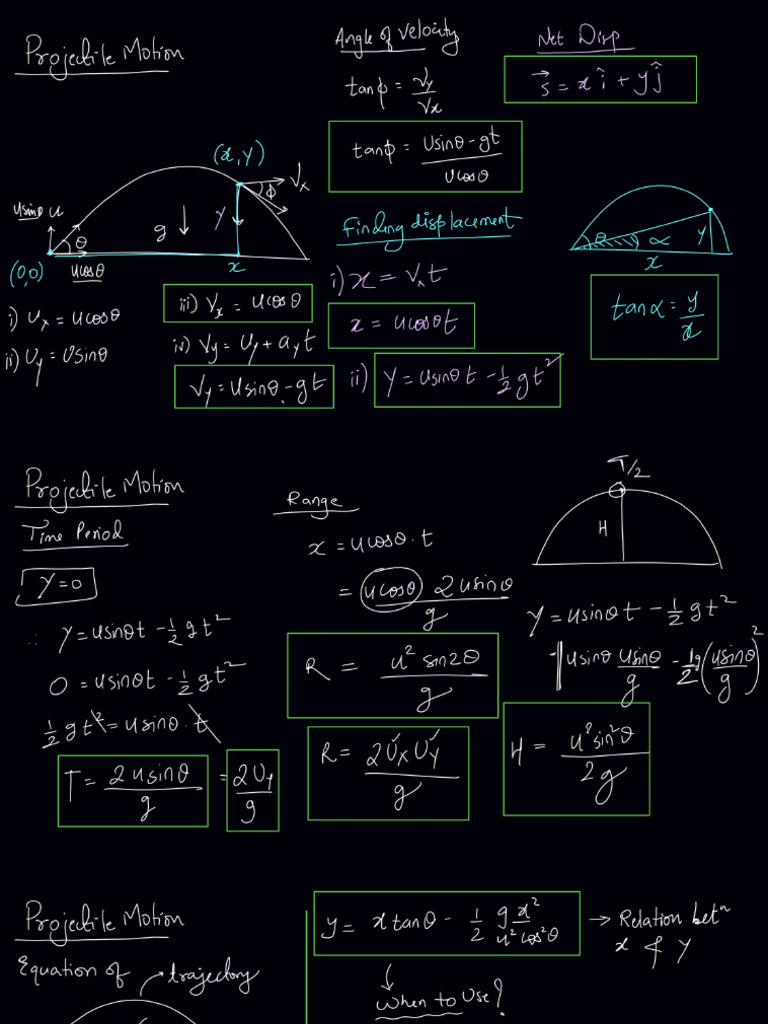 Projectile Motion
Angle of Velocity
tanφ = Vy/Vx
tanφ = Usinθ-gt/ucosθ
Net Disp
s⃗ = xî + yĵ
(x,y)
Vx
φ
usinθ u
θ
g
y
(0,0)
ucosθ
x
i) ux = ucosθ
ii) Uy = Usinθ
iii) Vx = ucosθ
iv) Vy = uy + ayt
Vy = usinθ-gt
Finding displacement
i) x = Vxt
x = ucosθt
ii) y = usinθt - 1/2 gt²
θ
α
y
x
tanα = y/x
Projectile Motion
Time Period
y=0
∴ y = usinθt - 1/2 gt²
0 = usinθt - 1/2 gt²
1/2 gt² = usinθ·t
T = 2usinθ/g = 2Uy/g
Range
x = ucosθ·t
= ucosθ 2usinθ/g
R = u² sin2θ/g
R = 2UxUy/g
T/2
H
y = usinθt - 1/2 gt²
usinθ usinθ/g - 1/2 g(usinθ/g)²
H = u²sin²θ/2g
Projectile Motion
Equation of trajectory
y = x tanθ - 1/2 gx²/u²cos²θ → Relation betn
x & y
When to Use?